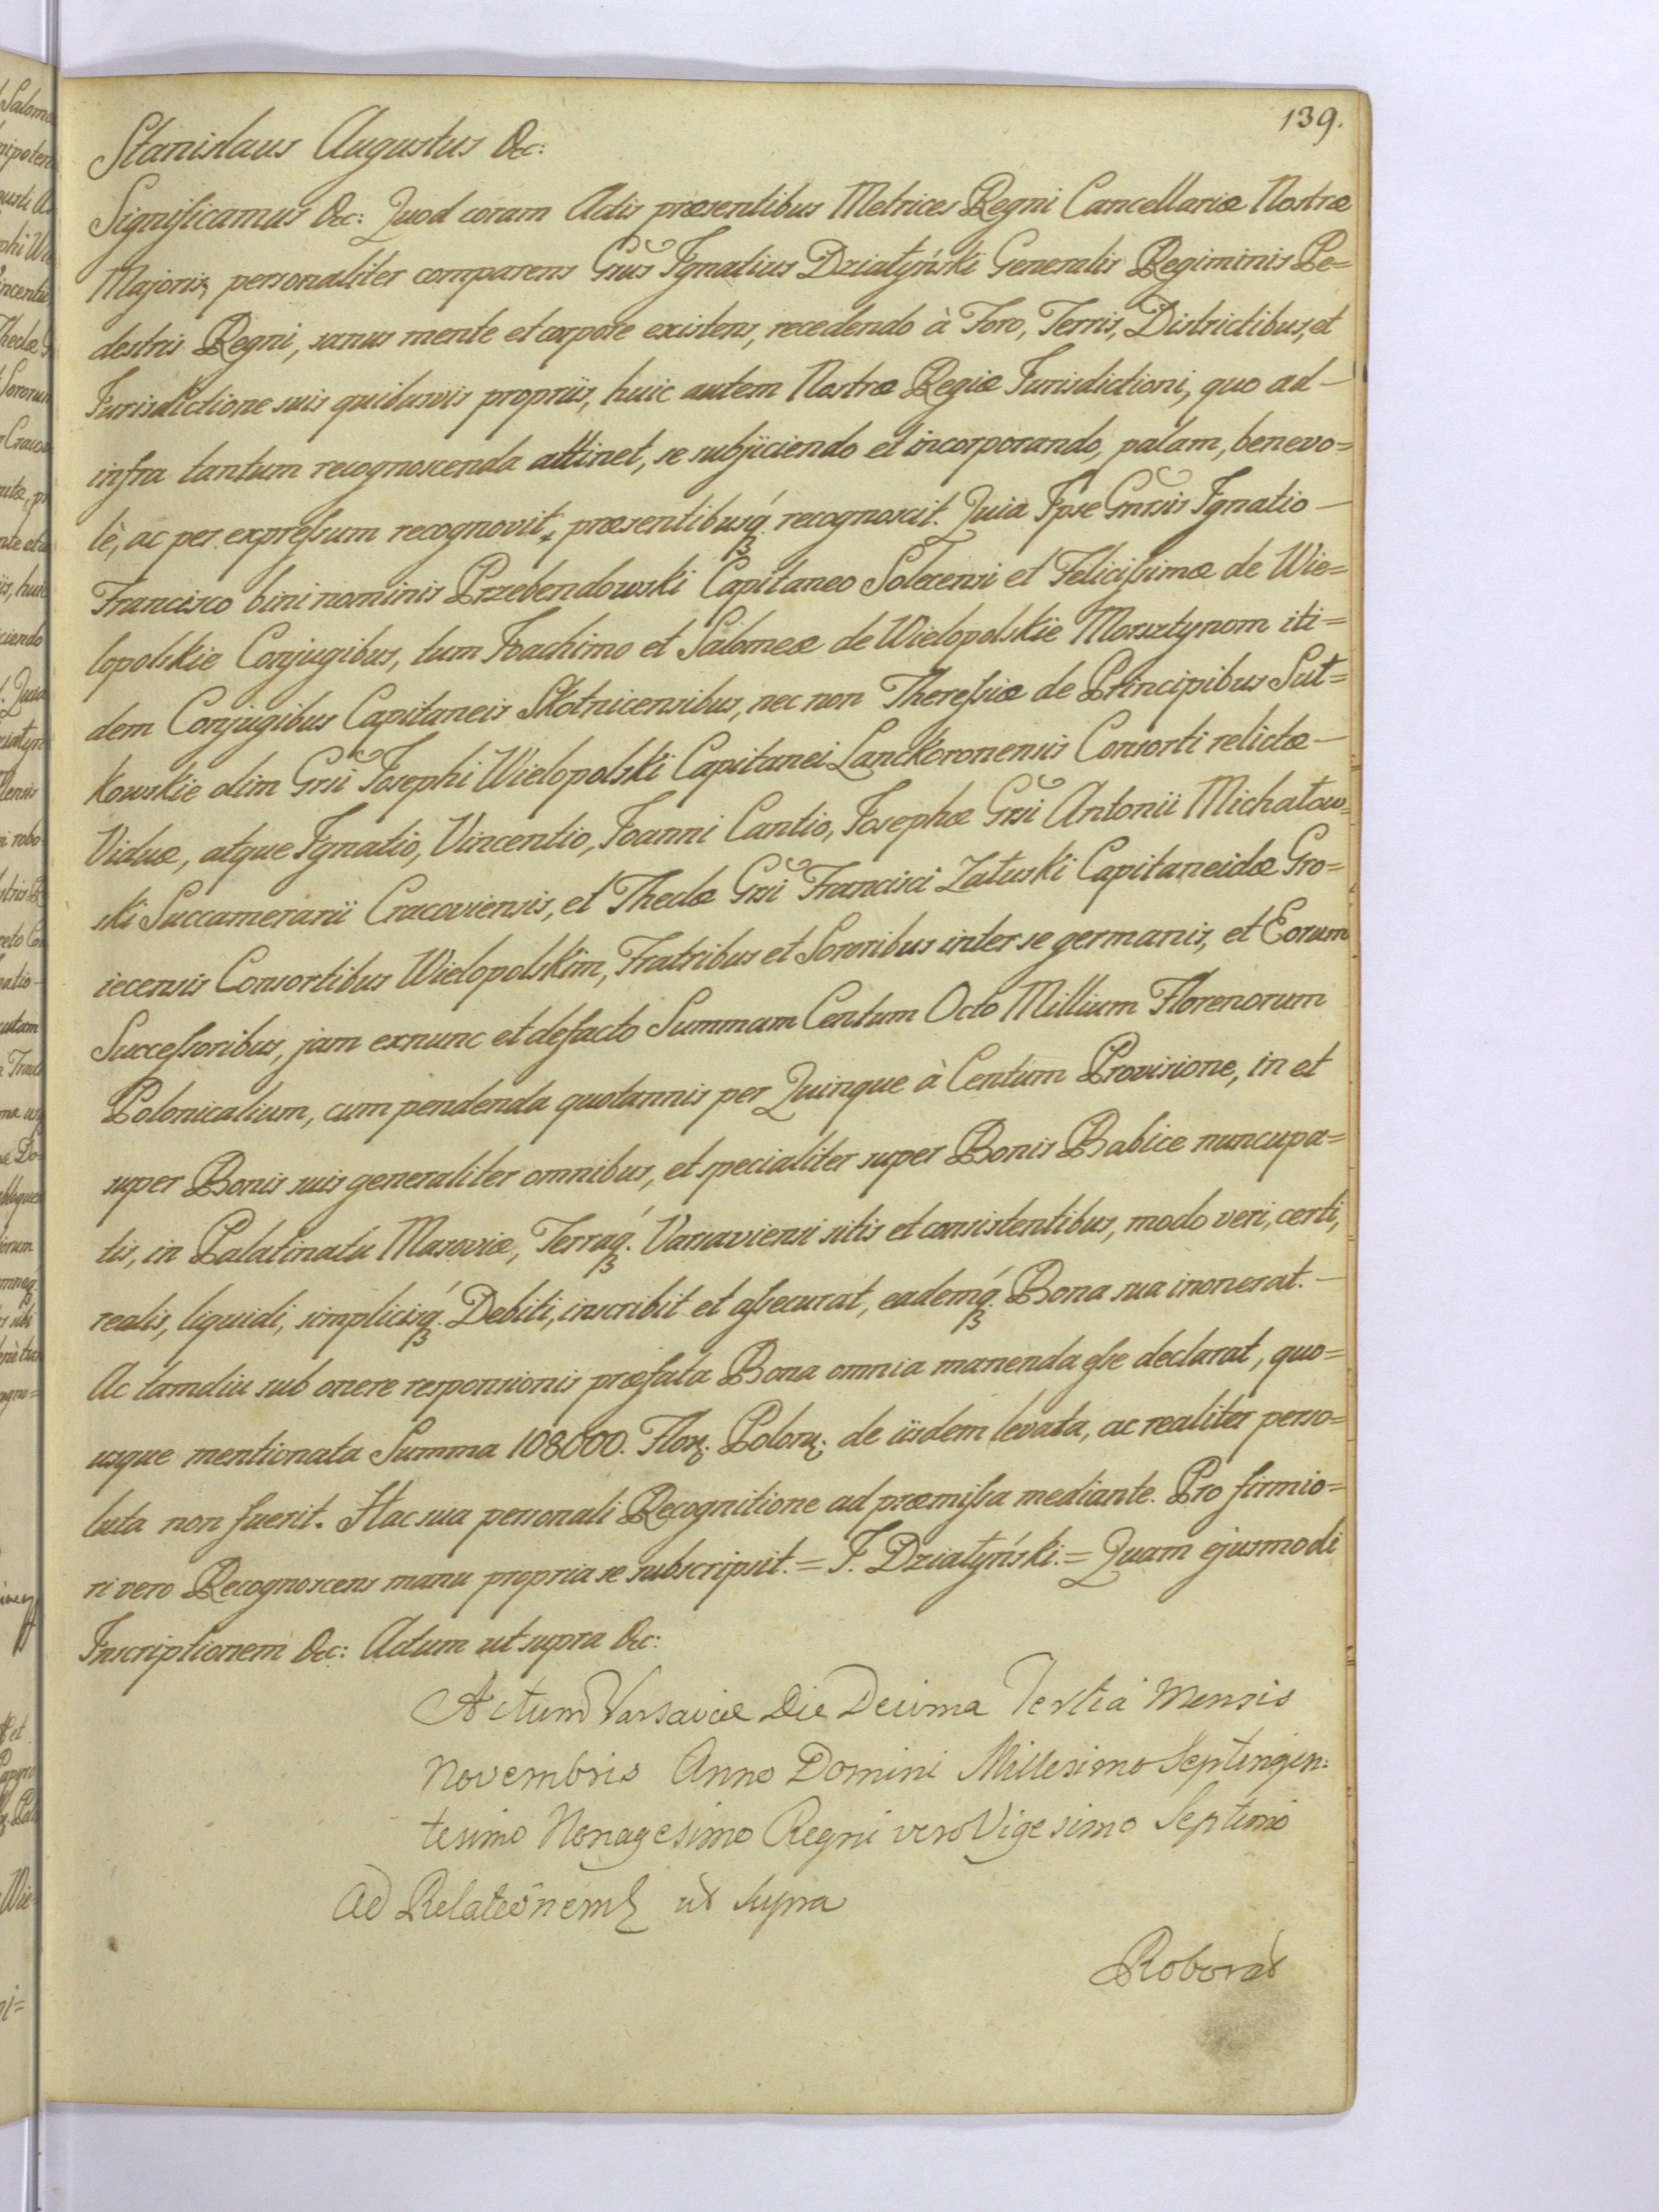 139.
Stanislaus Augustus &c:
Significamus &c: Quod coram Actis præsentibus Metrices Regni Cancellariæ Nostræ
Majoris, personaliter comparens Gnus Ignatius Działyński Generalis Regiminis Pe=
destris Regni, sanus mente et corpore existens, recedendo à Foro, Terris, Districtibus, et
Jurisdictione suis quibusvis propriis, huic autem Nostræ Regiæ Jurisdictioni, quo ad—
infra tantum recognoscenda attinet, se subjiciendo et incorporando, palam, benevo=
lè, ac per expressum recognovit, præsentibusq́ recognoscit. Quia Ipse Gnrsis Ignatio—
Francisco bini nominis Przebendowski Capitaneo Solecensi et Felicissimæ de Wie=
lopolskie Conjugibus, tum Joachimo et Salomeæ de Wielopolskie Morsztynom iti=
dem Conjugibus Capitaneis Skotnicensibus, nec non Theressiæ de Principibus Suł=
kowskie olim Grsi Josephi Wielopolski Capitanei Lanckoronensis Consorti relictæ—
Viduæ, atque Ignatio, Vincentio, Joanni Cantio, Josephæ Grsi Antonii Michałow=
ski Succamerarii Cracoviensis, et Theclæ Grsi Francisci Załuski Capitaneidæ Gro=
jecensis Consortibus Wielopolskim, Fratribus et Sororibus inter se germanis, et Eorum
Successoribus, jam exnunc et defacto Summam Centum Octo Millium Florenorum
Polonicalium, cum pendenda quotannis per Quinque à Centum Provisione, in et
super Bonis suis generaliter omnibus, et specialiter super Bonis Babice nuncupa=
tis, in Palatinatu Masoviæ, Terraq́. Varsaviensi sitis et consistentibus, modo veri, certi,
realis, liquidi, simplicisq́. Debiti, inscribit et assecurat, eademq́. Bona sua inonerat.—
Ac tamdiu sub onere responsionis præfata Bona omnia manenda esse declarat, quo=
usque mentionata Summa 108000. Flor. Polon. de iisdem levata, ac realiter perso=
luta non fuerit. Hac sua personali Recognitione ad præmissa mediante. Pro firmio=
ri vero Recognoscens manu propria se subscripsit.= I. Działyński.= Quam ejusmodi
Inscriptionem &c: Actum ut supra &c:
Actum Varsaviæ Die Decima Tertia Mensis
Novembris Anno Domini Millesimo Septingen:
tesimo Nonagesimo Regni vero Vigesimo Septimo
Ad Relationem ut supra
Roborat